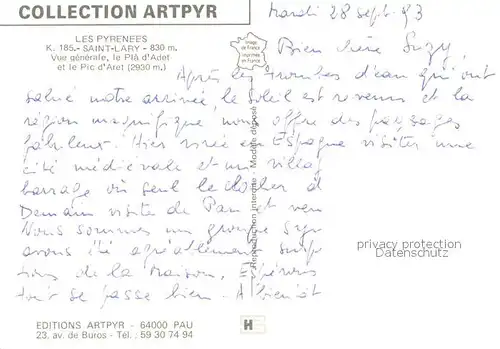 COLLECTION ARTPYR
LES PYRENEES
K. 185.- SAINT-LARY - 830 m.
Vue générale, le Plà d'Adet
et le Pic d'Aret (2930 m.)
Image
de France
imprimée
en France
Mardi 28 sept. 93
Bien chère Suzy,
Après les trombes d'eau qui ont
salué notre arrivée, le soleil est revenu et la
région magnifique nous offre des paysages
fabuleux. Hier virée en Espagne visiter une
cité médiévale et un villag
barrage où seul le clocher d
Demain visite de Pau et ven
Nous sommes un groupe sym
avons été agréablement surp
tions de la maison. Espérons
tout se passe bien. A bientôt
Reproduction interdite - Modèle déposé
privacy protection
Datenschutz
EDITIONS ARTPYR - 64000 PAU
23, av. de Buros - Tél. : 59 30 74 94
H